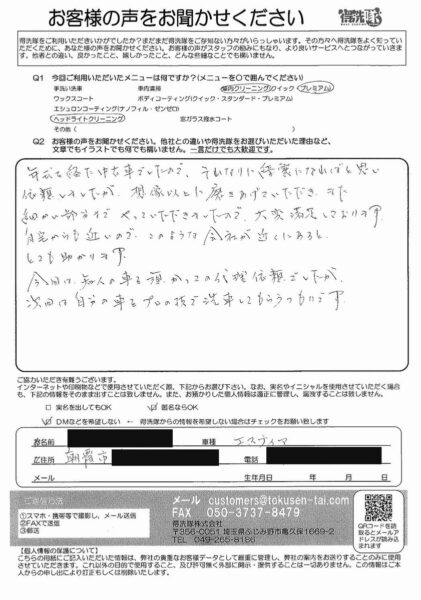 お客様の声をお聞かせください
得洗隊
得洗隊をご利用いただきいかがでしたか？まだまだ得洗隊をご存知ない方々がいらっしゃいます。その方々へ得洗隊をよく知っていただくために、あなた様の声をお聞かせください。お客様の声がスタッフの励みにもなり、より良いサービスへとつながっていきます。他者との違い、良かったこと、困ったこと、嬉しかったこと、どんなことでも構いません。
Q1 今回ご利用いただいたメニューは何ですか？(メニューを○で囲んでください)
手洗い洗車 車内清掃 車内クリーニング(クイック・プレミアム)
ワックスコート ボディコーティング(クイック・スタンダード・プレミアム)
エシュロンコーティング(ナノフィル・ゼンゼロ)
ヘッドライトクリーニング 窓ガラス撥水コート
その他( )
Q2 お客様の声をお聞かせください。他社との違いや得洗隊をお選びいただいた理由など、
文章でもイラストでも何でも構いません。一言だけでも大歓迎です。
年式を経た中古車でしたので、それなりに綺麗になればと思い
依頼しましたが、想像以上に磨きあげていただき、また
細かい部分まで やっていただきましたので、大変満足しております。
自宅からも近いので、このような会社が近くにあると、
とても助かります。
今回は、知人の車を預かっての代理依頼でしたが、
次回は自分の車をプロの技で洗車してもらうつもりです。
ご協力いただき有難うございます。
インターネットや印刷物などで使用させていただく際、下記からお選び下さい。なお、実名やイニシャルを使用させていただく場合も、下記の情報をそのまま出すことは致しません。また、お預かりした個人情報は適正に管理し、漏洩することは致しません。
□ 実名を出してもOK ☑ 匿名ならOK
☑ DMなどを希望しない ← 得洗隊からの情報を希望しない場合はチェックをお願い致します
お名前 車種 エスティマ
ご住所 朝霞市 電話
メール 生年月日 年 月 日
ご返信方法
①スマホ・携帯等で撮影し、メール送信
②FAXで送信
③郵送
メール customers@tokusen-tai.com
FAX 050-3737-8479
得洗隊株式会社
〒356-0051 埼玉県ふじみ野市亀久保1669-2
TEL 049-265-8186
QRコードを読取るとメールアドレスが読み込まれます
【個人情報の保護について】
こちらの用紙にご記入いただいた情報は、弊社の貴重なお客様データとして厳重に管理し、弊社の案内をお送りすることのみに使用させていただきます。これ以外の目的で使用すること、及び許可無く外部に開示・提供することは一切ありません。この情報はご本人からの申し出により訂正もしくは削除いたします。